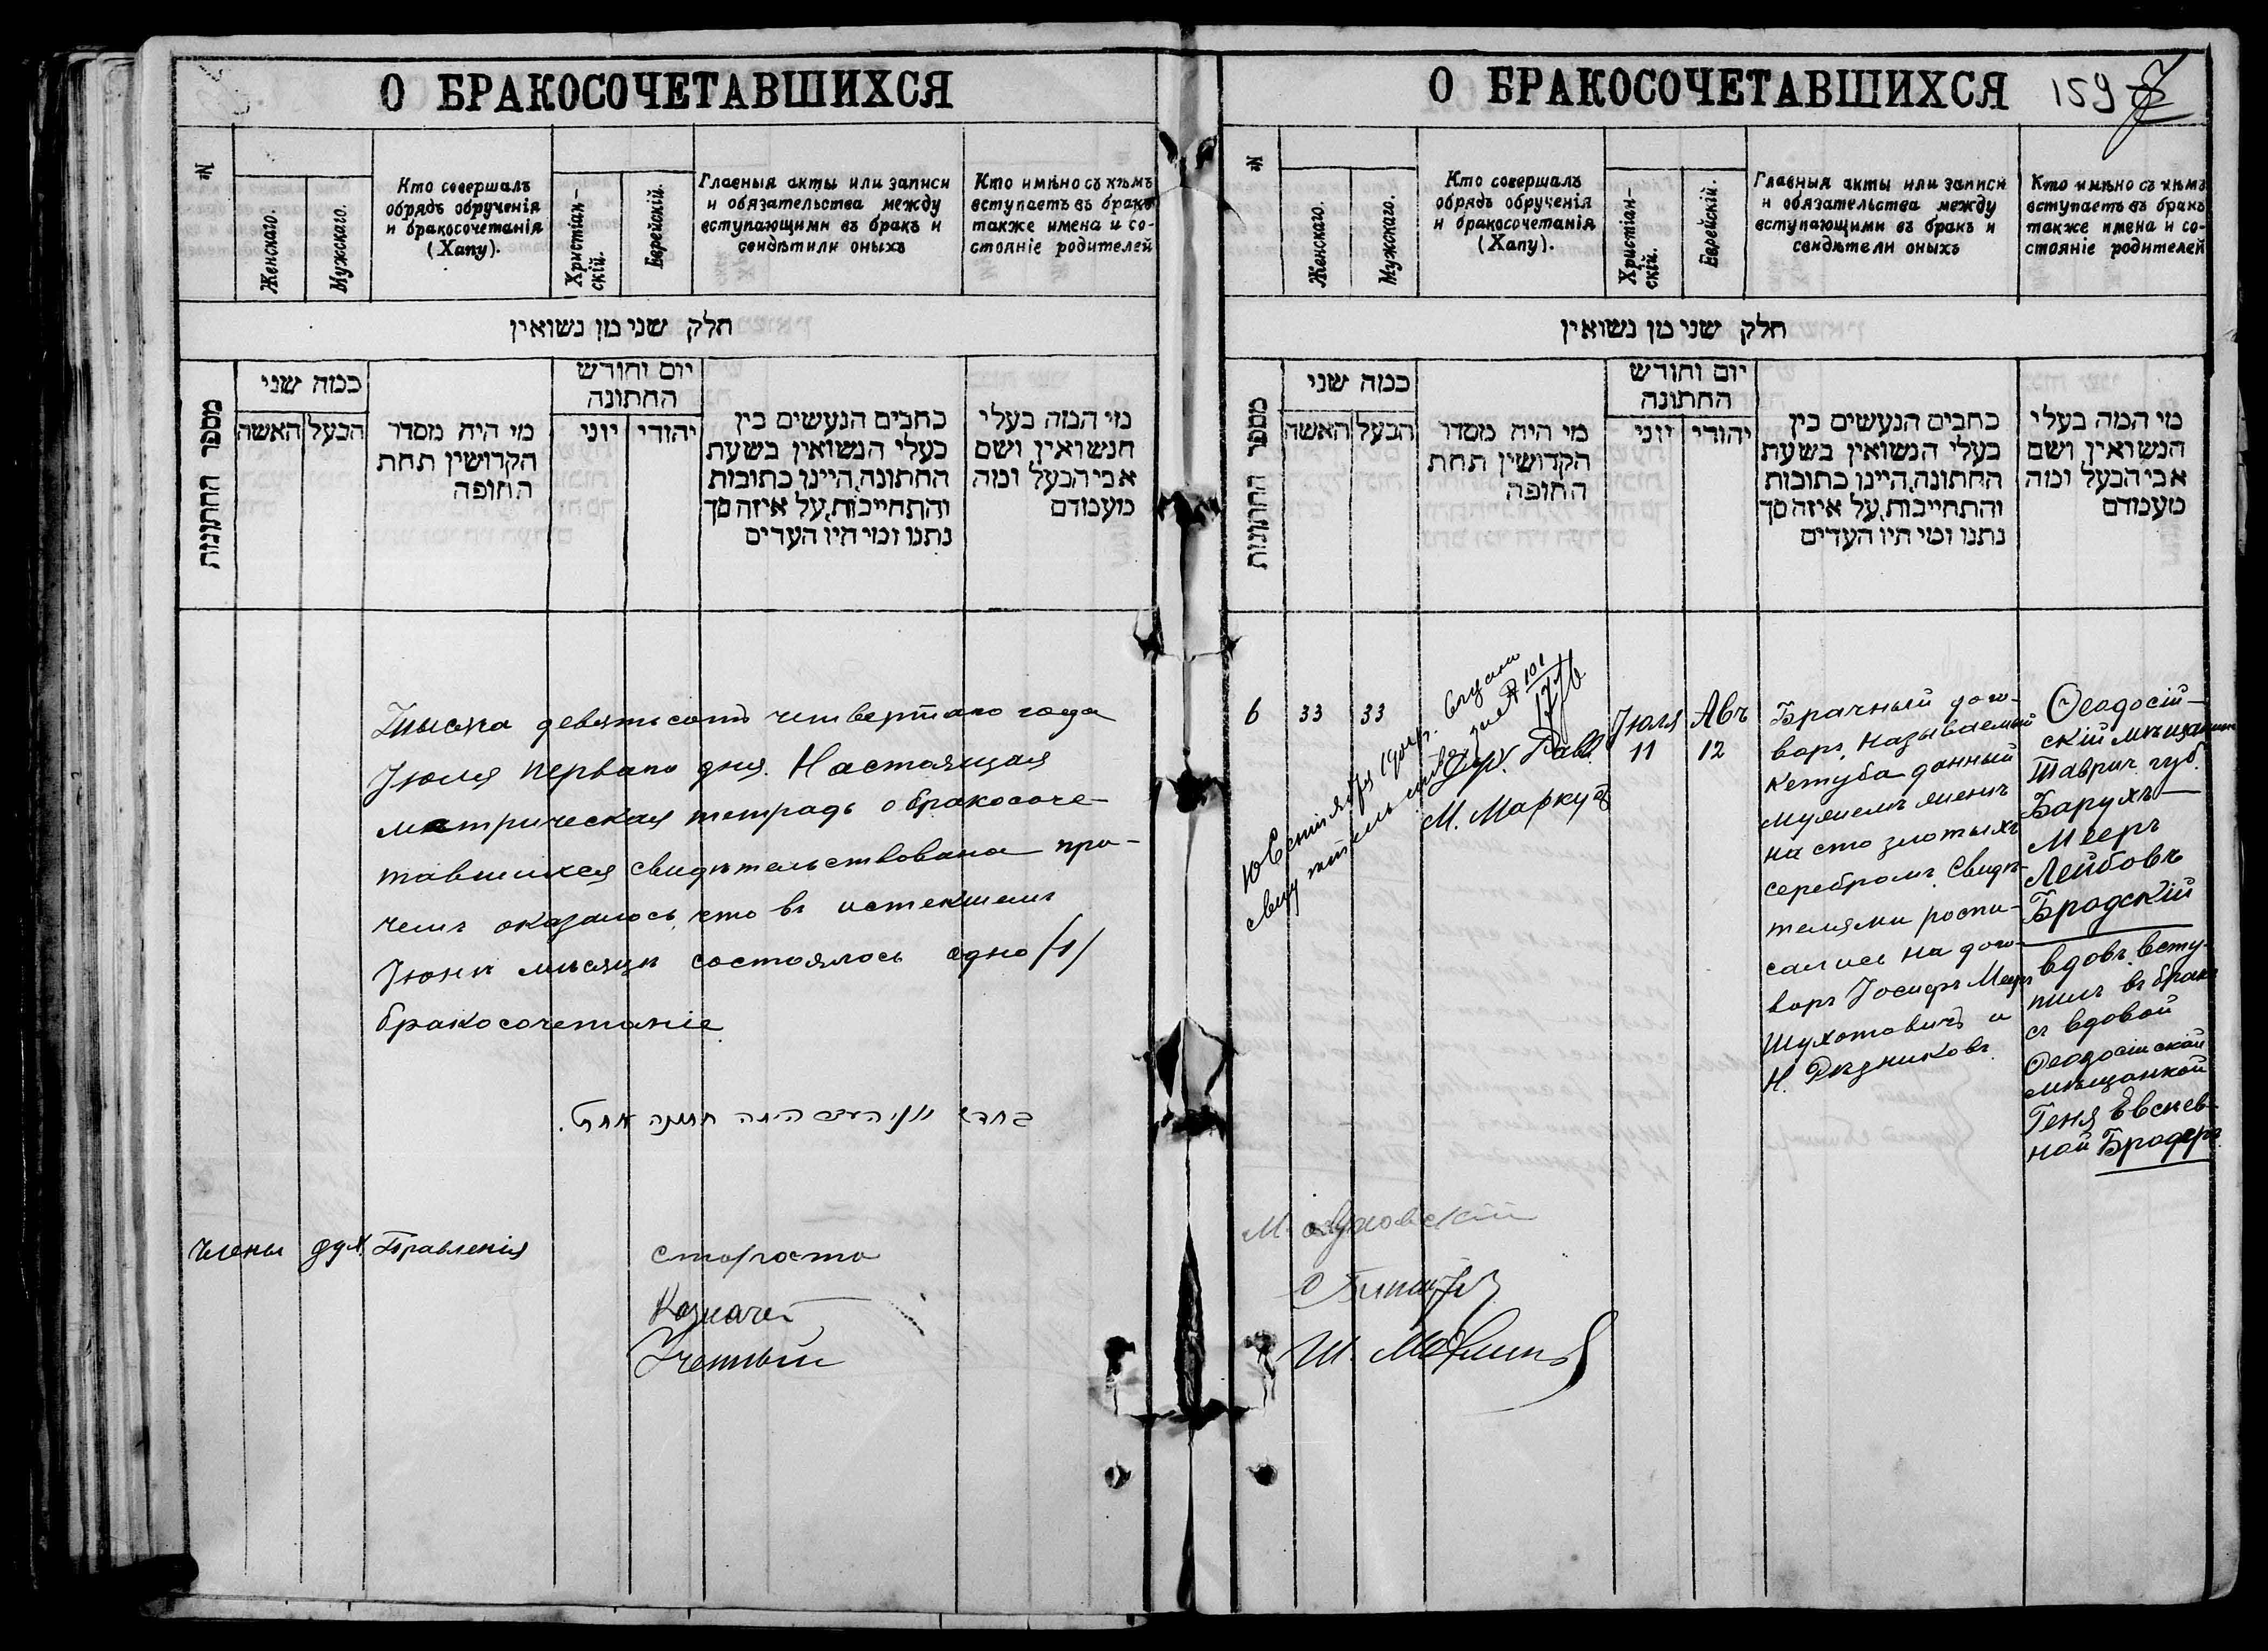 О БРАКОСОЧЕТАВШИХСЯ
№
Женскаго.
Мужскаго.
Кто совершалъ
обрядъ обрученія
и бракосочетанія
(Хапу).
Христіан-
скій.
Еврейскій.
Главныя акты или записи
и обязательства между
вступающими въ бракъ и
свидѣтили оныхъ
Кто имѣно съ кѣмъ
вступаетъ въ бракъ
также имена и со-
стояніе родителей
חלק שני מן נשואין
מספר החתונות
כמה שני
האשה
הבעל
מי היה מסדר
הקדושין תחת
החופה
יום וחודש
החתונה
יוני
יהודי
כתבים הנעשים בין
בעלי הנשואין בשעת
החתונה, היינו כתובות
והתחייבות, על איזה סך
נתנו ומי היו העדים
מי המה בעלי
הנשואין ושם
אבי הבעל ומה
מעמדם
Тысяча девятьсотъ четвертаго года
Іюля перваго дня. Настоящая
метрическая тетрадь о бракосоче-
тавшихся свидѣтельствована при-
чемъ оказалось, что въ истекшемъ
Іюнѣ мѣсяцѣ состоялось одно /1/
бракосочетаніе
Члены дух. Правленія
Староста
Казначей
Ученый
О БРАКОСОЧЕТАВШИХСЯ
159
№
Женскаго.
Мужскаго.
Кто совершалъ
обрядъ обрученія
и бракосочетанія
(Хапу).
Христіан-
скій.
Еврейскій.
Главныя акты или записи
и обязательства между
вступающими въ бракъ и
свидѣтели оныхъ
Кто имѣно съ кѣмъ
вступаетъ въ бракъ
также имена и со-
стояніе родителей
חלק שני מן נשואין
מספר החתונות
כמה שני
האשה
הבעל
מי היה מסדר
הקדושין תחת
החופה
יום וחודש
החתונה
יוני
יהודי
כתבים הנעשים בין
בעלי הנשואין בשעת
החתונה, היינו כתובות
והתחייבות, על איזה סך
נתנו ומי היו העדים
מי המה בעלי
הנשואין ושם
אבי הבעל ומה
מעמדם
6
33
33
10 Сентября 1904 г.
101
Равв.
М. Маркузъ
Іюля
11
Авъ
12
Брачный дого-
воръ, называемый
кетуба данный
мужемъ женѣ
на сто злотыхъ
серебромъ. Свидѣ-
телями роспи-
сались на дого-
ворѣ Іосифъ Мееръ
Шухотовичъ и
Н. Рѣзниковъ.
Ѳеодосій-
скій мѣщанинъ
Таврич. губ.
Барухъ
Мееръ
Лейбовъ
Бродскій
вдовъ всту-
пилъ въ бракъ
съ вдовой
Ѳеодосійской
мѣщанкой
Геня Евсеев-
ной Бродеръ